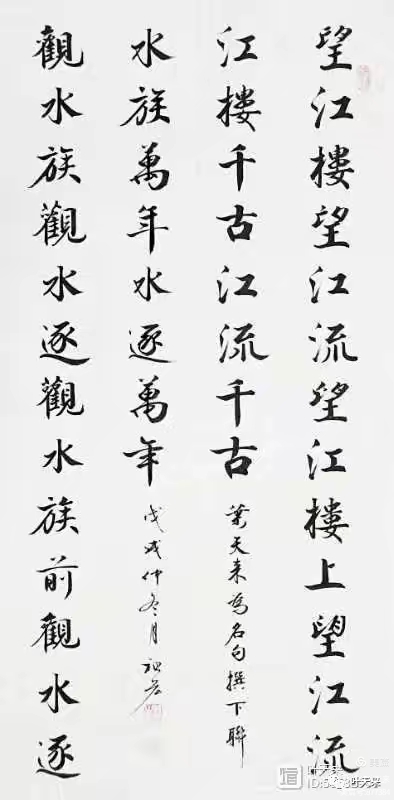 望江樓望江流望江樓上望江流
江樓千古江流千古
葉天來為名句撰下聯
觀水族觀水逐觀水族前觀水逐
水族萬年水逐萬年
戊戌仲冬月
叶天来